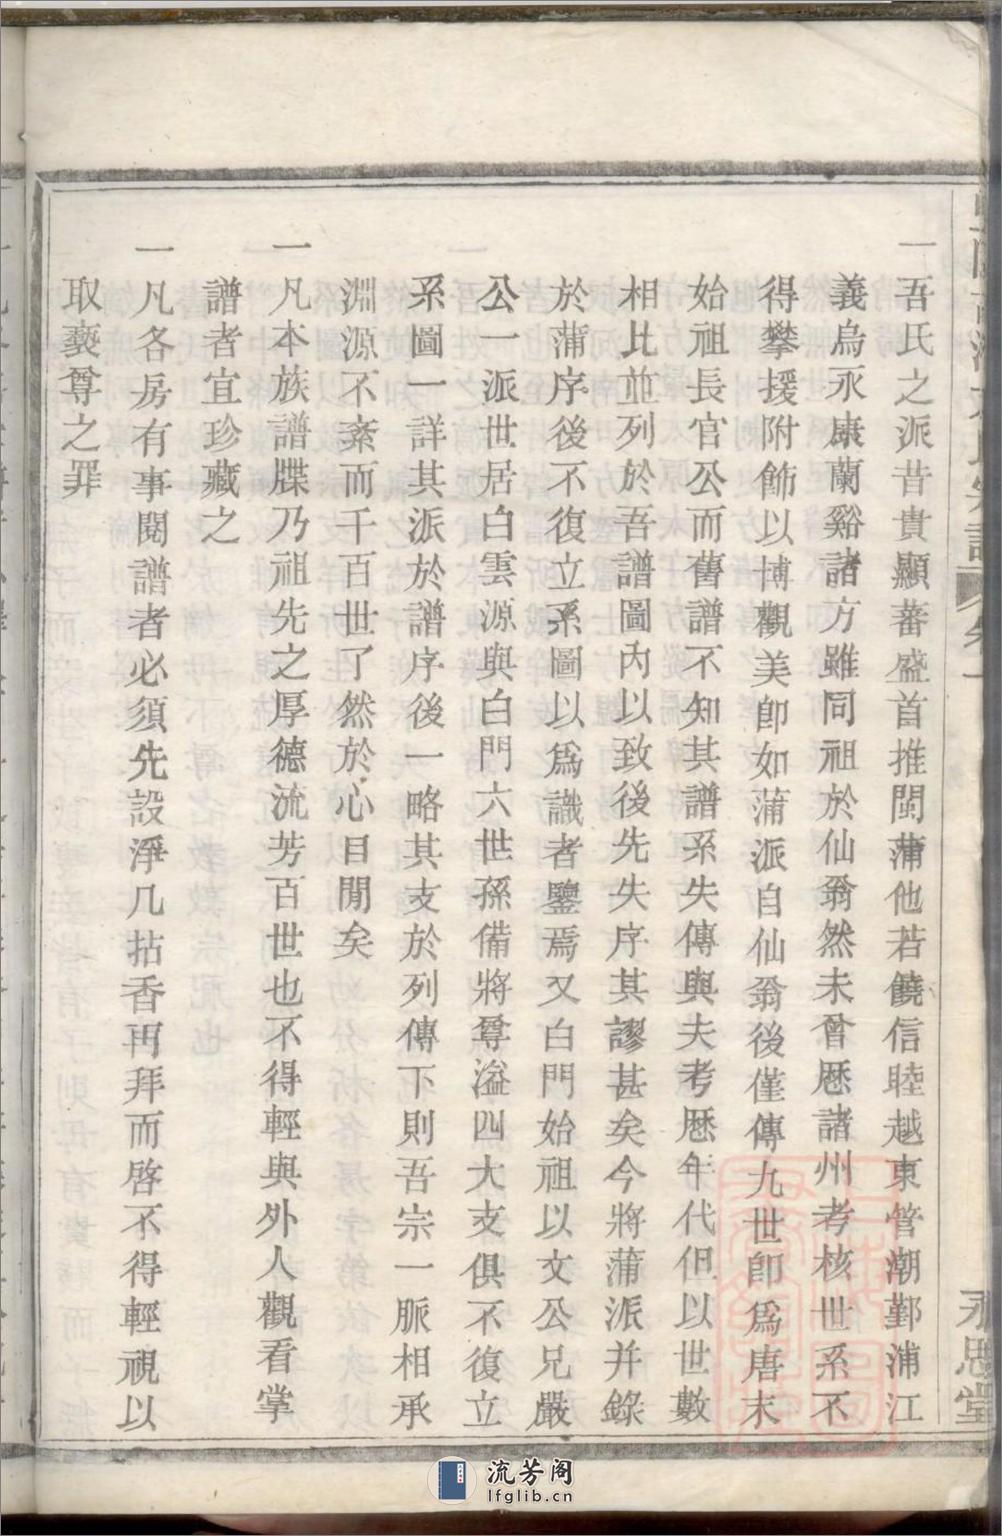 一吾氏之派昔貴顯蕃盛首推閩蒲他若饒信睦越東管潮鄞浦江
義烏永康蘭谿諸方雖同祖於仙翁然未曾歷諸州考核世系不
得攀援附飾以博觀美卽如蒲派自仙翁後僅傳九世卽爲唐末
始祖長官公而舊譜不知其譜系失傳與夫考歷年代但以世數
相比並列於吾譜圖內以致後先失序其謬甚矣今將蒲派并錄
於蒲序後不復立系圖以爲識者鑒焉又白門始祖以文公兄嚴
公一派世居白雲源與白門六世孫備將尊溢四大支俱不復立
系圖一詳其派於譜序後一略其支於列傳下則吾宗一脈相承
淵源不紊而千百世了然於心目閒矣
一凡本族譜牒乃祖先之厚德流芳百世也不得輕與外人觀看掌
譜者宜珍藏之
一凡各房有事閱譜者必須先設淨几拈香再拜而啓不得輕視以
取褻尊之罪
永思堂
流芳阁
lfglib.cn